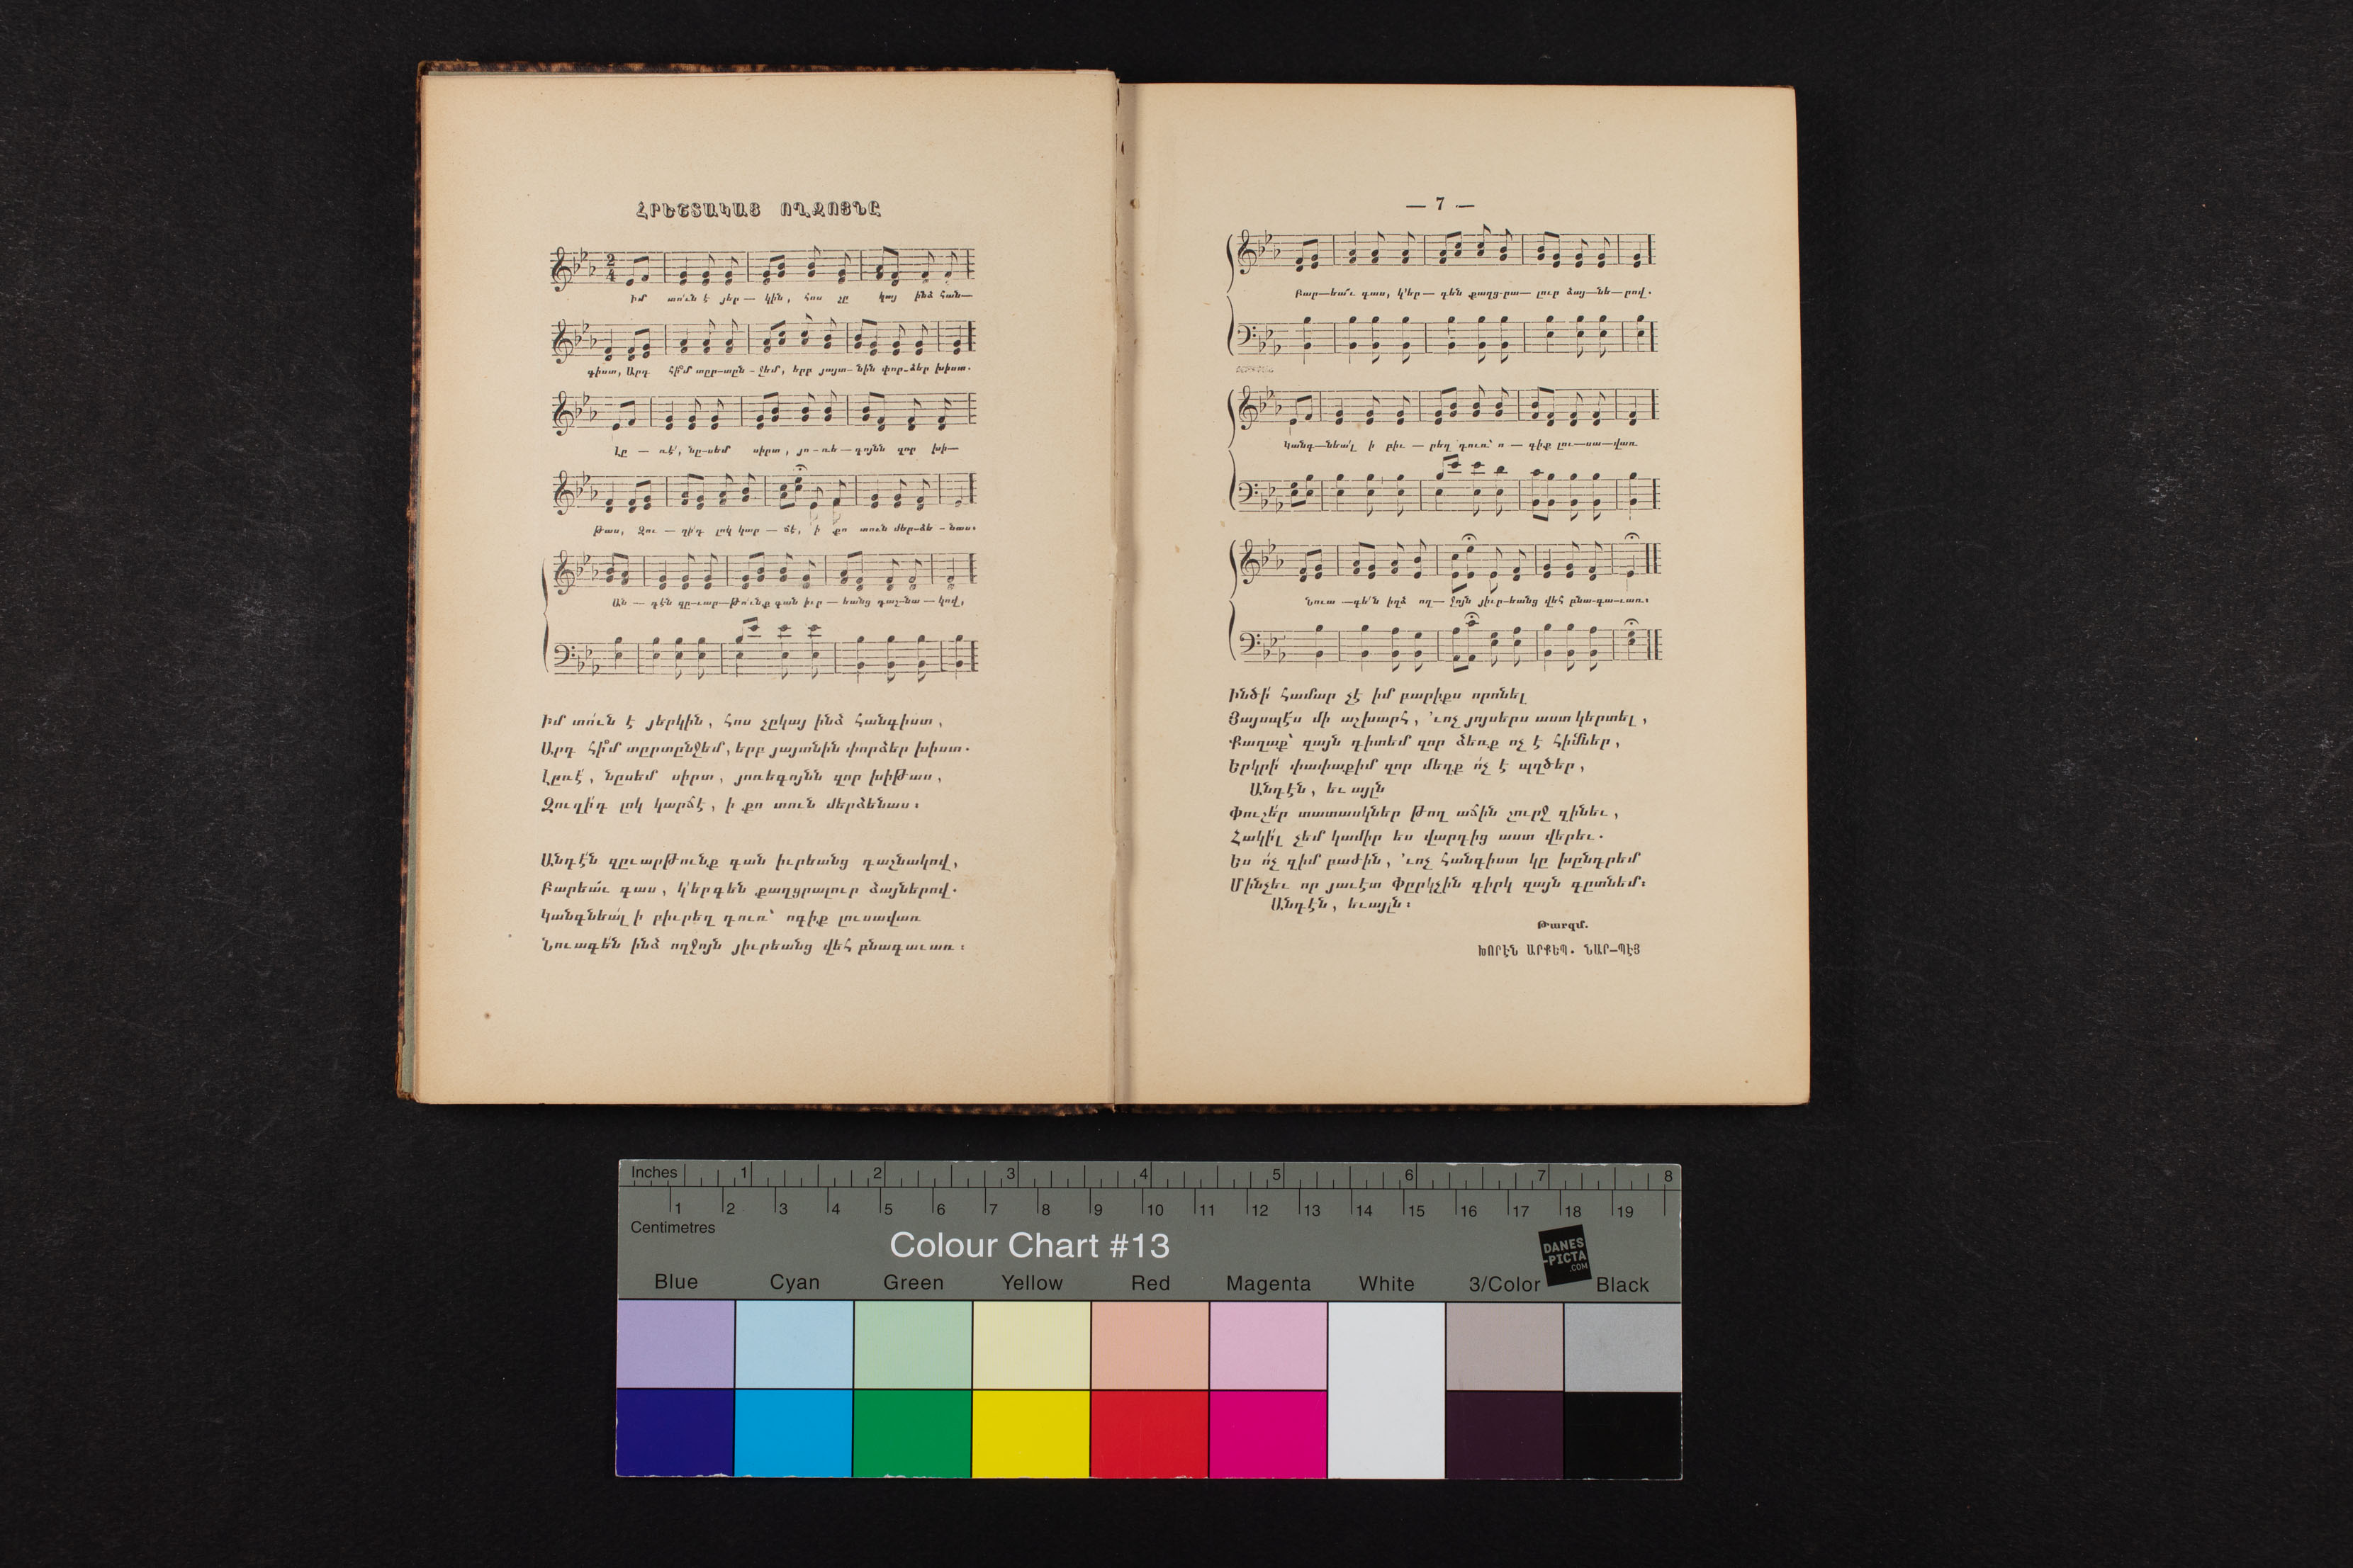 ՀՐԵՇՏԱԿԱՑ ՈՂՋՈՅՆԸ
Իմ տո՛ւն է յեր — կին, հոս չը կայ ինձ հան—
գիստ, Արդ հի՞մ տըր—տըն — ջեմ, երբ յայտ— նին փոր—ձեր խիստ.
Լը — ռէ՛, նը—սեմ սիրտ, յո—ռե—գոյնն զոր խի—
թաս, Զու — ղի՛դ լոկ կար — ճէ, ի քո տուն մեր—ձե — նաս։
Ան — դէն զը—ւար—թո՛ւնք գան իւր — եանց դաշ—նա — կով,
Իմ տո՛ւն է յերկին, հոս չըկայ ինձ հանգիստ,
Արդ հի՞մ տըրտընջեմ, երբ յայտնին փորձեր խիստ.
Լըռէ՛, նըսեմ սիրտ, յոռեգոյնն զոր խիթաս,
Զուղի՛դ լոկ կարճէ, ի քո տուն մերձենաս։
Անդէ՛ն զըւարթունք գան իւրեանց դաշնակով,
Բարեա՜ւ գաս, կ՚երգեն քաղցրալուր ձայներով.
Կանգնեա՛լ ի բիւրեղ դուռ՝ ոգիք լուսավառ
Նուագե՛ն ինձ ողջոյն յիւրեանց վեհ բնագաւառ։
— 7 —
Բար—եա՜ւ գաս, կ՚եր — գեն քաղց-րա— լուր ձայ—նե—րով.
Կանգ—նեա՛լ ի բիւ — րեղ դուռ՝ ո — գիք լու—սա—վառ
Նուա —գե՛ն ինձ ող— ջոյն յիւր—եանց վեհ բնա-գա—ւառ։
Ինծի՛ համար չէ իմ բարիքս որոնել
Յայսպէ՛ս մի աշխարհ, ՚ւոչ յոյսերս աստ կերտել,
Քաղաք՝ զայն դիտեմ զոր ձեռք ոչ է հիմներ,
Երկրի՛ փափաքիմ զոր մեղք ո՛չ է պղծեր,
Անդէն, եւ այլն
Փուշե՛ր տատասկներ թող աճին շուրջ զինեւ,
Հակի՛լ չեմ կամիր ես վարդից աստ վերեւ.
Ես ո՛չ զիմ բաժին, ՚ւոչ հանգիստ կը խընդրեմ
Մինչեւ որ յաւէտ Փըրկչին գիրկ զայն գըտնեմ։
Անդէն, եւայլն։
Թարգմ.
ԽՈՐԷՆ ԱՐՔԵՊ. ՆԱՐ—ՊԷՅ
Inches 1 2 3 4 5 6 7 8
1 2 3 4 5 6 7 8 9 10 11 12 13 14 15 16 17 18 19
Centimetres
Colour Chart #13
DANES
-PICTA
.COM
Blue Cyan Green Yellow Red Magenta White 3/Color Black